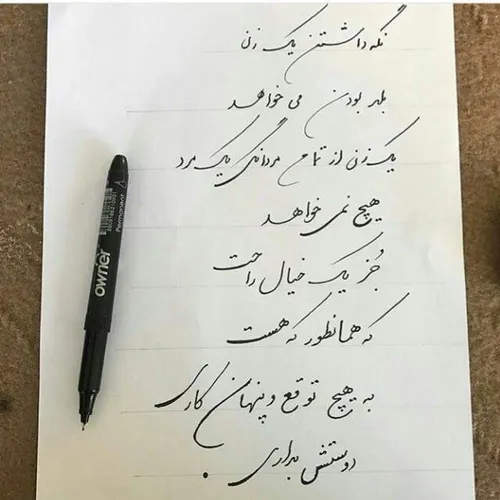 نگه داشتن یک زن
بلد بودن می خواهد
یک زن از تمام مردانگی یک مرد
هیچ نمی خواهد
جُز یک خیال راحت
که همانطور که هست
به هیچ توقع و پنهان کاری
دوستش بداری .
owner
Permanent